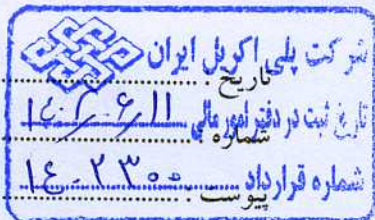 شرکت پلی اکریل ایران
تاریخ :
تاریخ ثبت در دفتر امور مالی ۱۴۰۲/۶/۱۱
شماره :
شماره قرارداد ۱۴۰۲۳۰۰
پیوست :